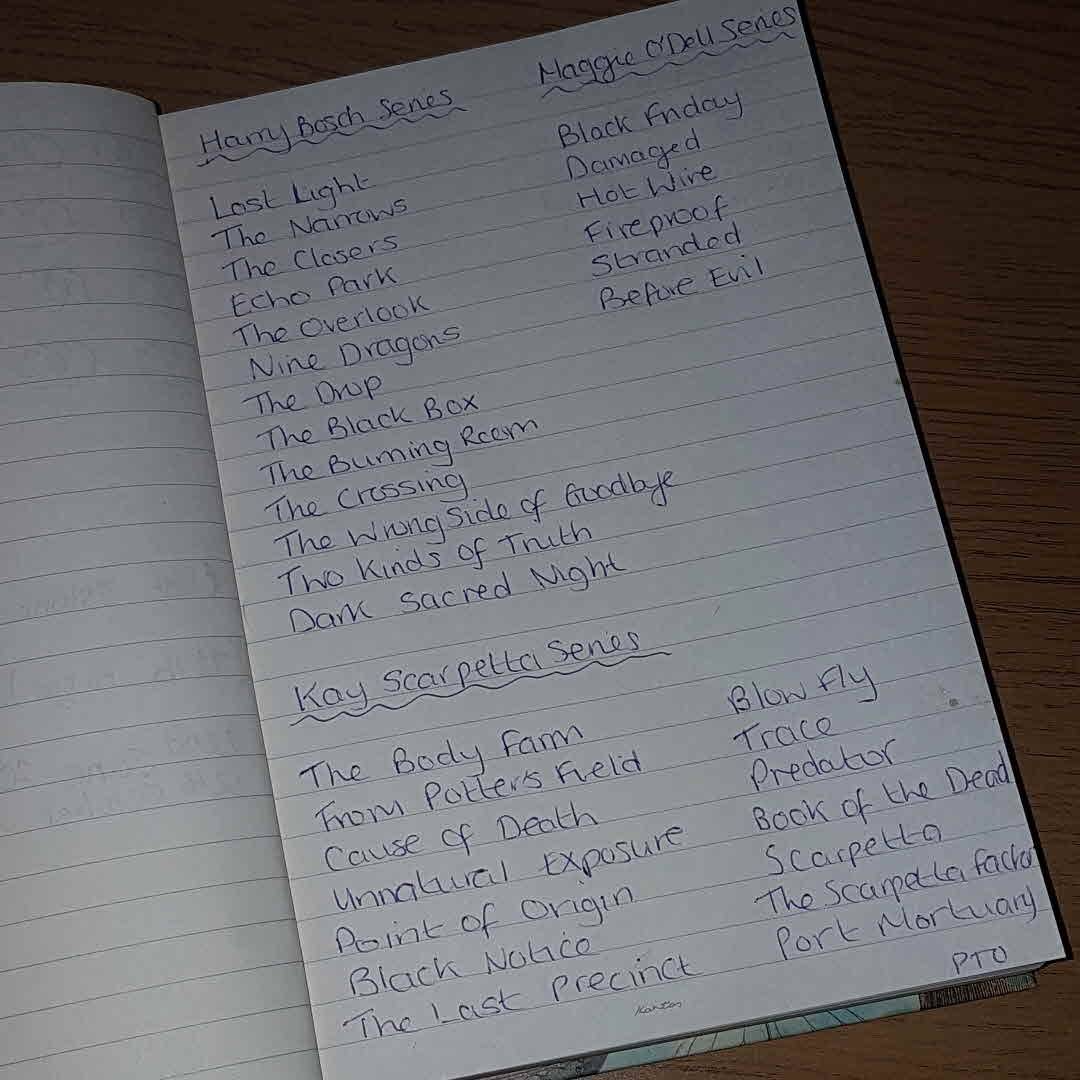 Harry Bosch Series
Lost Light
The Narrows
The Closers
Echo Park
The Overlook
Nine Dragons
The Drop
The Black Box
The Burning Room
The Crossing
The Wrong Side of Goodbye
Two Kinds of Truth
Dark Sacred Night
Maggie O'Dell Series
Black Friday
Damaged
Hot Wire
Fireproof
Stranded
Before Evil
Kay Scarpetta Series
The Body Farm
From Potter's Field
Cause of Death
Unnatural Exposure
Point of Origin
Black Notice
The Last Precinct
Blow Fly
Trace
Predator
Book of the Dead
Scarpetta
The Scarpetta Factor
Port Mortuary
PTO